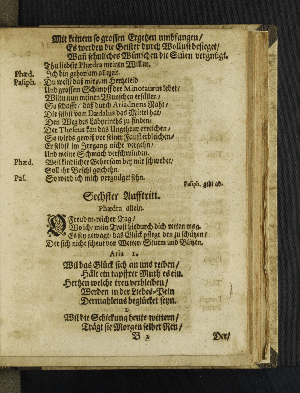 Mit keinem so grossen Ergehen umbfangen/
Es werden die Geister durch Wollust besieget/
Wañ sehnliches Wünschen die Stillen vergnügt.
Thu liebste Phædra meinen Willen.
Phæd. Ich bin gehorsam allezeit.
Pasiph. Du weist daß mir im Hertzeleid
Und grossen Schimpff der Minotaurus lebet/
Wiltu nun meinen Wunschen erfüllen/
So schaffe/ daß durch Ariadnens Raht/
Die selbst vom Dædalus das Mittel hat/
Den Weg des Labyrinths zu finden/
Der Theseus kan das Ungeheur erreichen/
So wird es gewiß vor seiner Faust erbleichen/
Er selbst im Irrgang nicht vergehn/
Und meine Schmach verschwinden.
Phæd. Weil kindlicher Gehorsam bey mir schwebet/
Soll ihr Befehl geschehn.
Pas. So wird ich mich vergnüget sehn.
Pasiph. geht ab.
Sechster Aufftritt.
Phædra allein.
O Freudenreicher Tag/
Wo ich/ mein Trost hiedurch dich retten mag.
Es sey gewagt: das Glück pfleget den zu schützen/
Der sich nicht scheut vor Wetter/ Sturm und Blitzen.
Aria 1.
Wil das Glück sich an uns reiben/
Hält ein tapffrer Muth es ein.
Hertzen welche treu verbleiben/
Werden in der Liebes-Pein
Dermahleins beglücket seyn.
2.
Wil die Schickung heute wittern/
Trägt sie Morgen selber Reu/
B 3 Der/